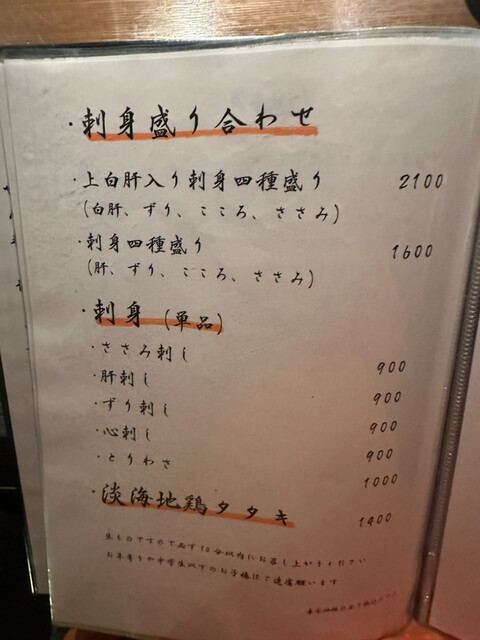 ・刺身盛り合わせ
・上白肝入り刺身四種盛り 2100
(白肝、ずり、こころ、ささみ)
・刺身四種盛り 1600
(肝、ずり、こころ、ささみ)
・刺身(単品)
・ささみ刺し 900
・肝刺し 900
・ずり刺し 900
・心刺し 900
・とりわさ 1000
・淡海地鶏タタキ 1400
生ものですので必ず10分以内にお召し上がりください
お年寄りや中学生以下のお子様はご遠慮願います